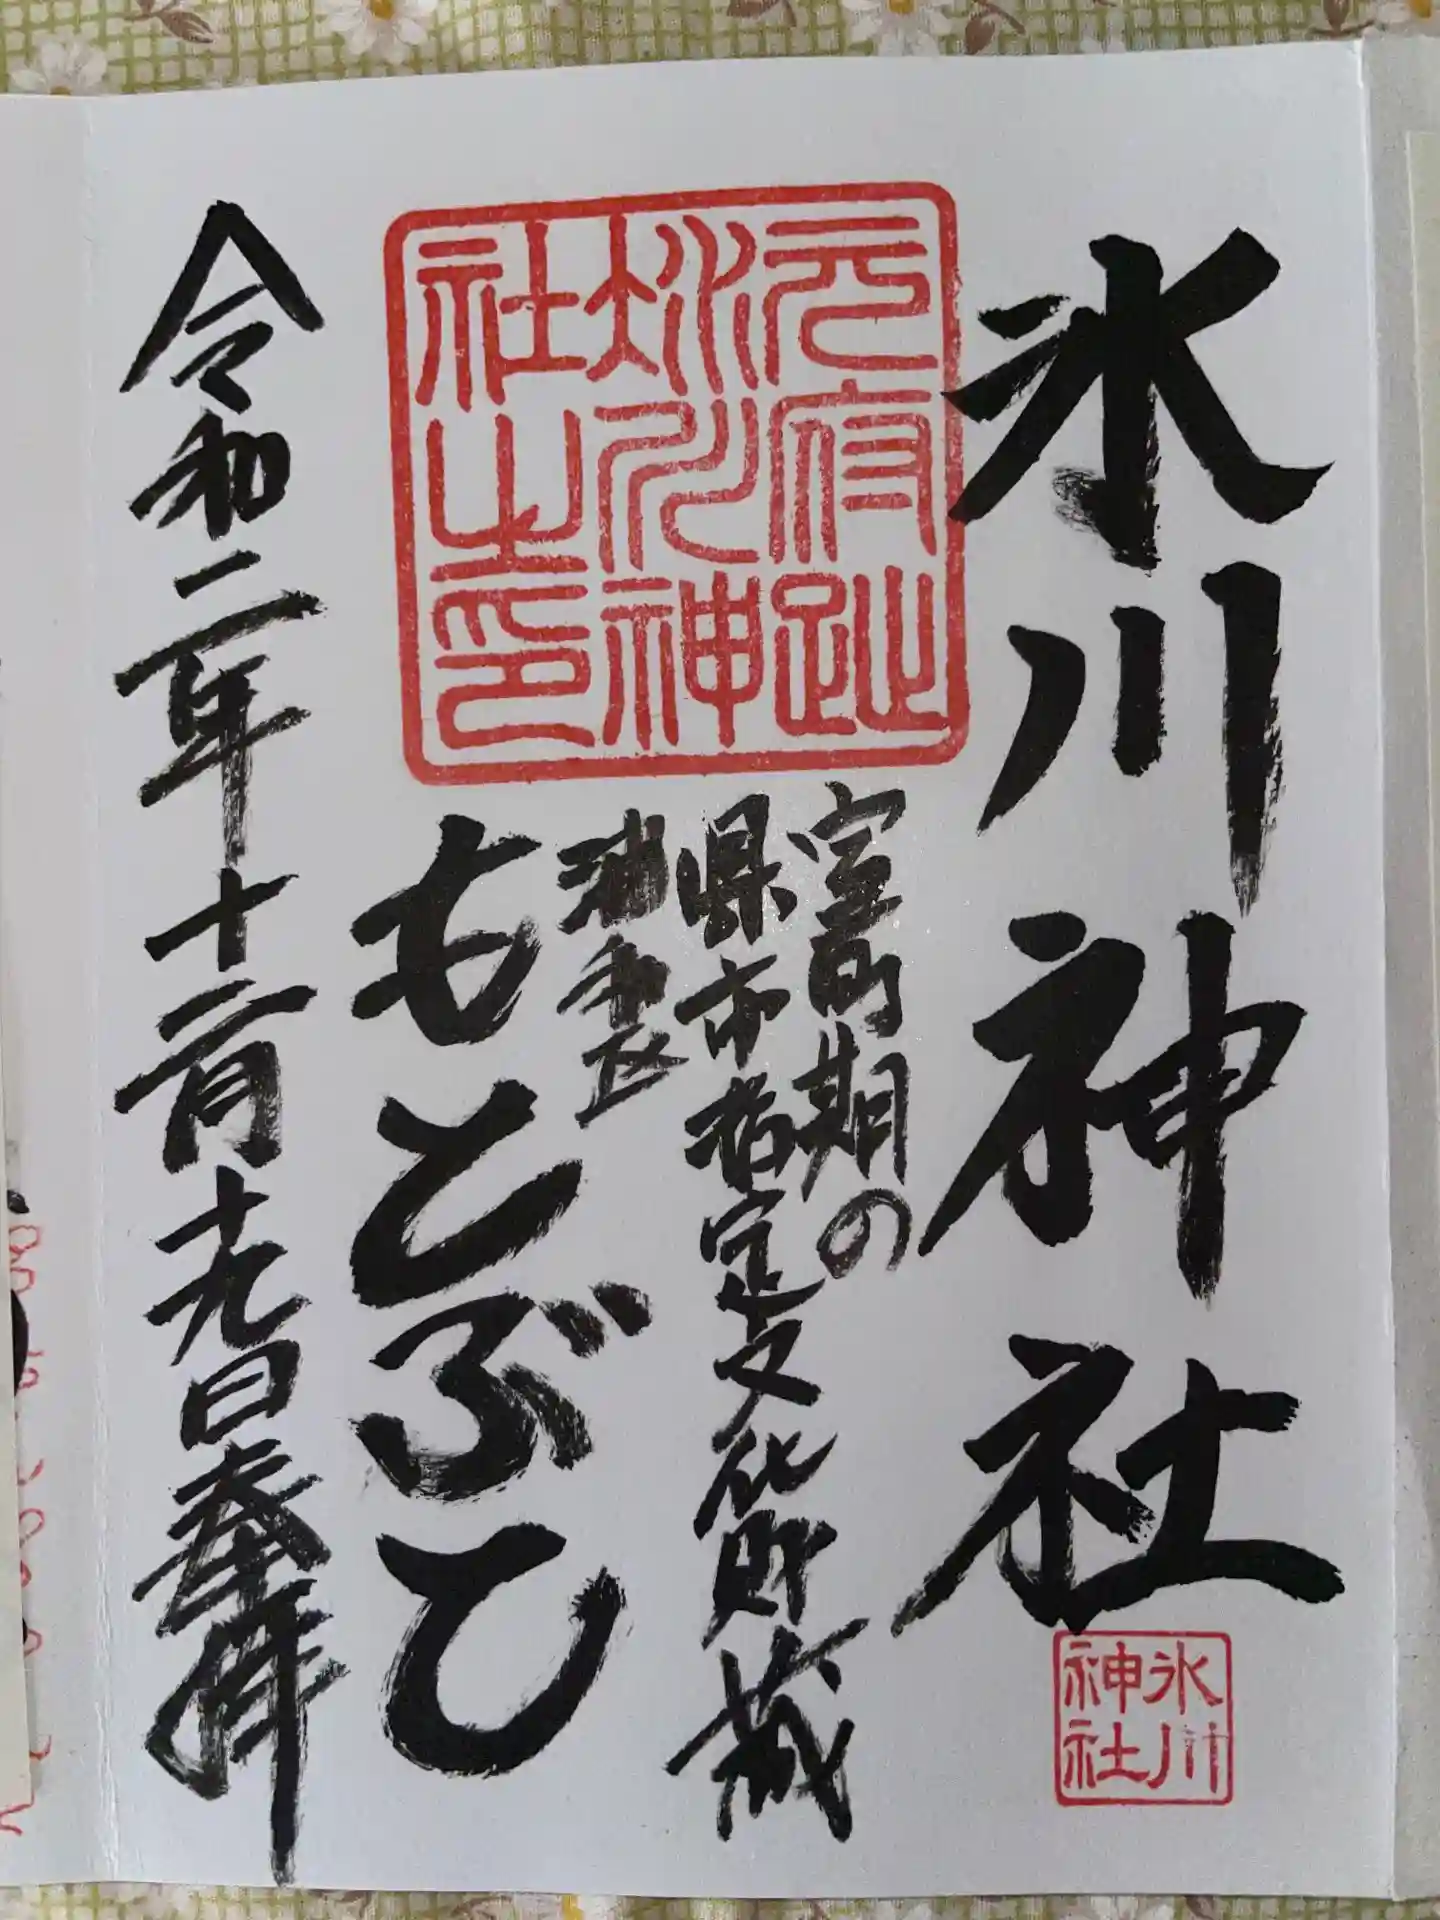 氷川神社
氷川
神社
元府趾
氷川神
社之印
室町期の
県市指定文化財蔵
もとぶと
令和二年十二月十九日奉拝